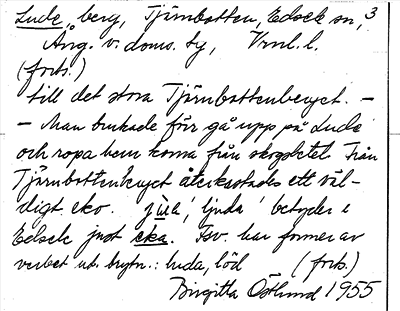 Lude, berg, Tjärnbotten, Edsele sn, 3
Ång. v. doms. ty, Vrnl. l.
(forts.)
till det stora Tjärnbottenberget. –
– Man brukade förr gå upp på Lude
och ropa hem korna från skogsbetet. Från
Tjärnbottenberget återkastades ett väl-
digt eko. 'ljuda' betyder i
Edsele just eka. Tsv. har former av
verbet ut. brytn.: luda, löd (forts.)
Birgitta Östlund 1955